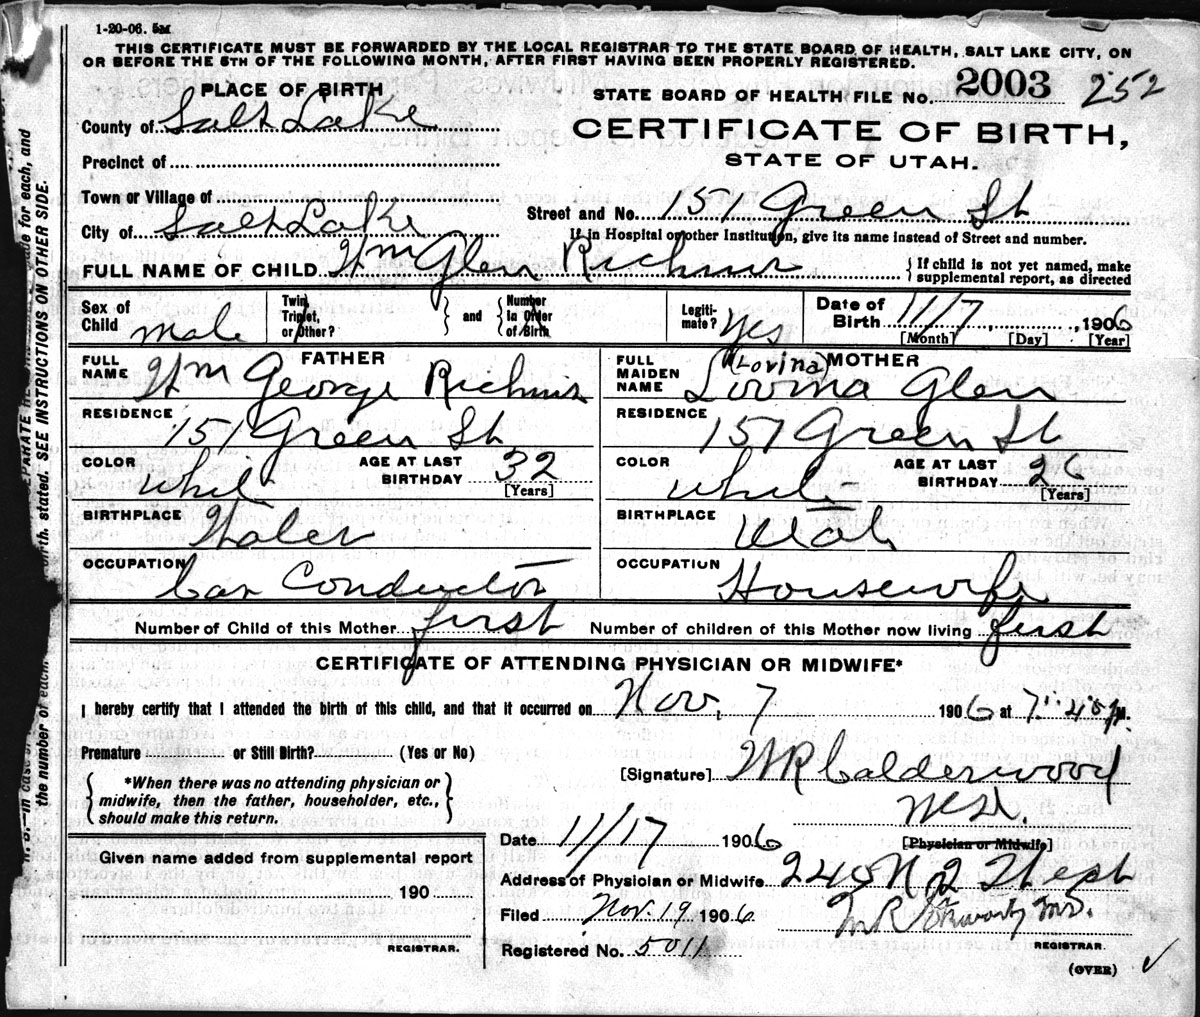 1-20-06. 5M
THIS CERTIFICATE MUST BE FORWARDED BY THE LOCAL REGISTRAR TO THE STATE BOARD OF HEALTH, SALT LAKE CITY, ON
OR BEFORE THE 5TH OF THE FOLLOWING MONTH, AFTER FIRST HAVING BEEN PROPERLY REGISTERED.
PLACE OF BIRTH
STATE BOARD OF HEALTH FILE No. 2003 252
County of Salt Lake
CERTIFICATE OF BIRTH,
STATE OF UTAH.
Precinct of
Town or Village of
Street and No. 151 Green St
City of Salt Lake
If in Hospital or other Institution, give its name instead of Street and number.
FULL NAME OF CHILD Wm Glen
{ If child is not yet named, make
supplemental report, as directed
Sex of Child male
Twin, Triplet, or Other?
} and {
Number In Order of Birth
Legiti-mate? Yes
Date of Birth 11/7, 1906
[Month] [Day] [Year]
FATHER
FULL NAME Wm George
RESIDENCE 151 Green St
COLOR Whit AGE AT LAST BIRTHDAY 32
[Years]
BIRTHPLACE Wales
OCCUPATION Car Conductor
MOTHER
FULL MAIDEN NAME (Lovina) Lovina Glen
RESIDENCE 151 Green St
COLOR White AGE AT LAST BIRTHDAY 26
[Years]
BIRTHPLACE Utah
OCCUPATION Housewife
Number of Child of this Mother first Number of children of this Mother now living first
CERTIFICATE OF ATTENDING PHYSICIAN OR MIDWIFE*
I hereby certify that I attended the birth of this child, and that it occurred on Nov. 7 1906 at 7:40 p.m.
Premature or Still Birth? (Yes or No)
[Signature] WR Calderwood
*When there was no attending physician or
midwife, then the father, householder, etc.,
should make this return.
[Physician or Midwife]
Given name added from supplemental report
190
REGISTRAR.
Date 11/17 1906
Address of Physician or Midwife 240 N 2
Filed Nov. 19 1906
REGISTRAR.
Registered No. 5011
(OVER)
the number of each,
birth, stated. SEE INSTRUCTIONS ON OTHER SIDE.